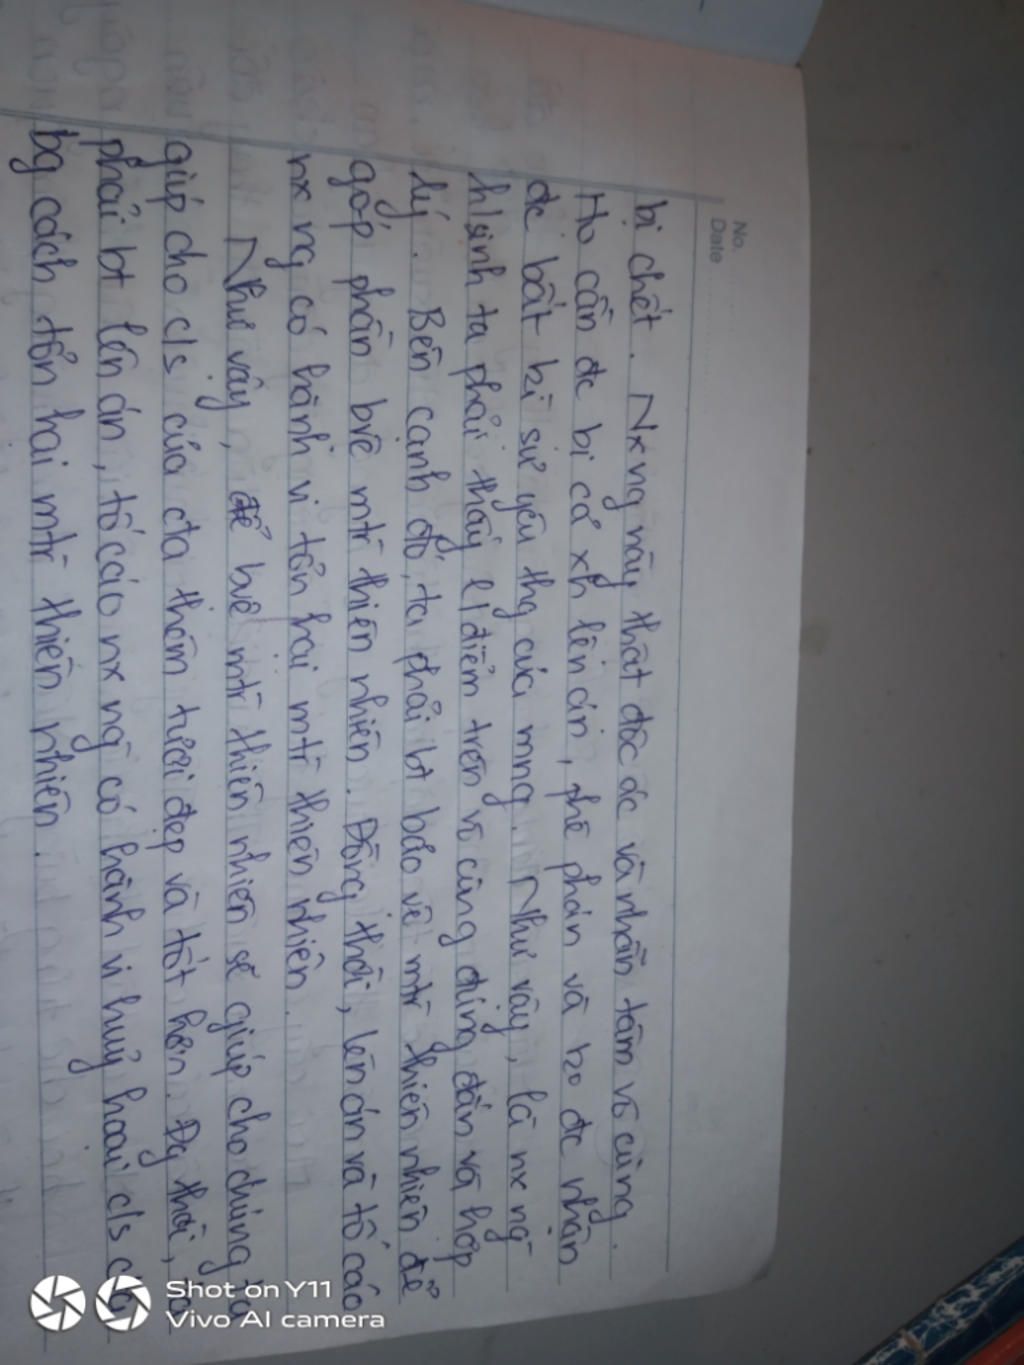 No.
Date
bị chết. Nx ng này thật độc ác và nhẫn tâm vô cùng.
Họ cần đc bị cả xh lên án, phê phán và ko đc nhận
đc bất kì sự yêu thg của mng. Như vậy, là nx ng
h/sinh ta phải thấy q/điểm trên vô cùng đúng đắn và hợp
lý. Bên cạnh đó, ta phải bt bảo vệ mtr thiên nhiên để
góp phần bvệ mtr thiên nhiên. Đồng thời, lên án và tố cáo
nx ng có hành vi tổn hại mtr thiên nhiên.
Như vậy, để bvệ mtr thiên nhiên sẽ giúp cho chúng ta
giúp cho c/s của cta thêm tươi đẹp và tốt hơn. Đg thời, ta
phải bt lên án, tố cáo nx ng có hành vi huỷ hoại c/s
bg cách tổn hại mtr thiên nhiên.
Shot on Y11
Vivo AI camera